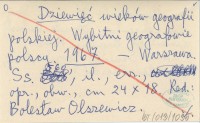 0
Dziewięć wieków geografii
polskiej. Wybitni geografowie
polscy. 1967 — Warszawa.
Ss. 569, il., err.,
opr., obw., cm 24 x 18. Red.
Bolesław Olszewicz.